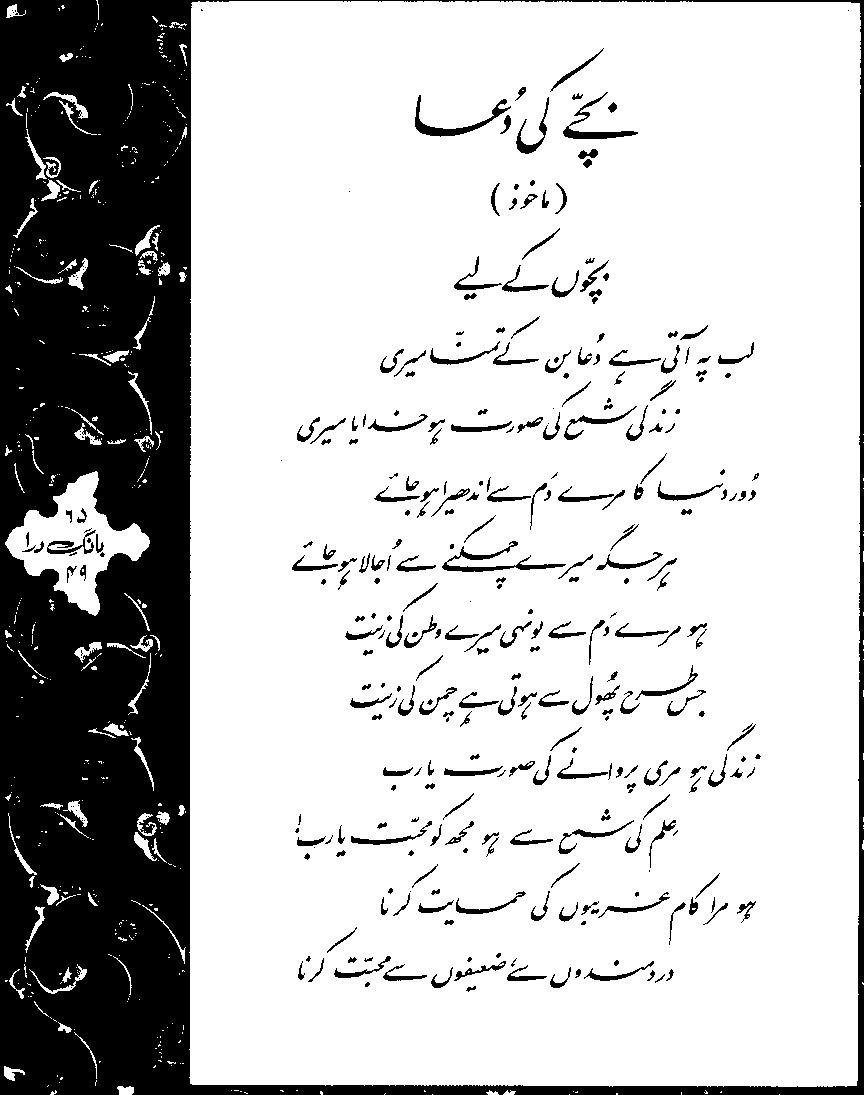 بچّے کی دُعا
(ماخوذ)
بچّوں کے لیے
لب پہ آتی ہے دُعا بن کے تمنّا میری
زندگی شمع کی صورت ہو خدایا میری
دُور دنیا کا مرے دَم سے اندھیرا ہو جائے
ہر جگہ میرے چمکنے سے اُجالا ہو جائے
ہو مرے دَم سے یونہی میرے وطن کی زینت
جس طرح پھُول سے ہوتی ہے چمن کی زینت
زندگی ہو مری پروانے کی صورت یارب
عِلم کی شمع سے ہو مجھ کو محبّت یارب!
ہو مرا کام غریبوں کی حمایت کرنا
دردمندوں سے، ضعیفوں سے محبّت کرنا
۶۵
بانگِ درا
۴۹